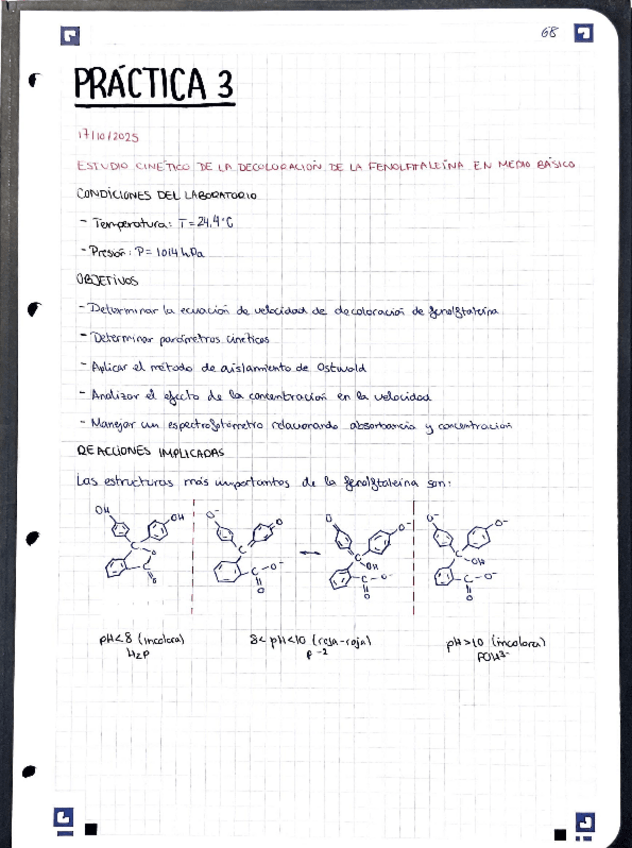 68
PRÁCTICA 3
17/10/2025
ESTUDIO CINÉTICO DE LA DECOLORACIÓN DE LA FENOLFTALEÍNA EN MEDIO BÁSICO
CONDICIONES DEL LABORATORIO
- Temperatura: T = 24,4°C
- Presión: P = 1014 hPa
OBJETIVOS
- Determinar la ecuación de velocidad de decoloración de fenolftaleína
- Determinar parámetros cinéticos
- Aplicar el método de aislamiento de Ostwald
- Analizar el efecto de la concentración en la velocidad
- Manejar un espectrofotómetro relacionando absorbancia y concentración
REACCIONES IMPLICADAS
Las estructuras más importantes de la fenolftaleína son:
OH OH C O C O
O⁻ O C C-O⁻ O
O O⁻ C OH C-O⁻ O
O⁻ O⁻ C OH C-O⁻ O
pH<8 (incolora) 8<pH<10 (rosa-roja) pH>10 (incolora)
H₂P P⁻² POH³⁻